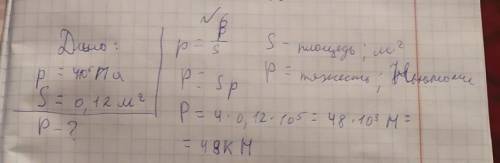 √6
Дано:
p = 4·10⁵ Па
S = 0,12 м²
P - ?
p = P/S
P = Sp
S - площадь; м²
P = тяжесть; Ньютоны
P = 4 · 0,12 · 10⁵ = 48 · 10³ Н =
= 48 кН